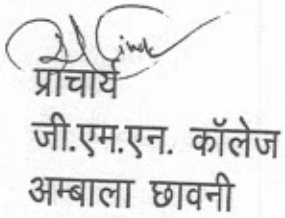 प्राचार्य
जी.एम.एन. कॉलेज
अम्बाला छावनी